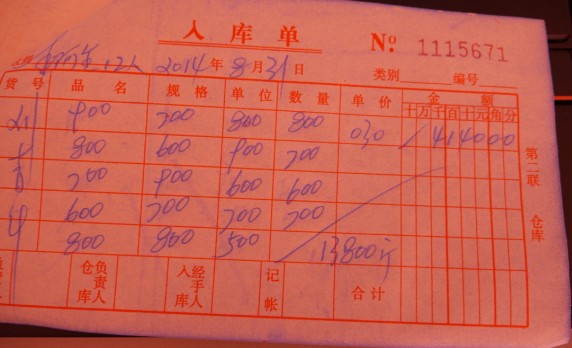 入库单 № 1115671
12人 2014年8月31日 类别 编号
货号 品名 规格 单位 数量 单价 金额
十万千百十元角分
900 700 800 800 030 414000
800 600 900 700
700 900 600 600
600 700 700 700
800 800 500 13800斤
第二联 仓库
仓库负责人 入库经手人 记帐 合计